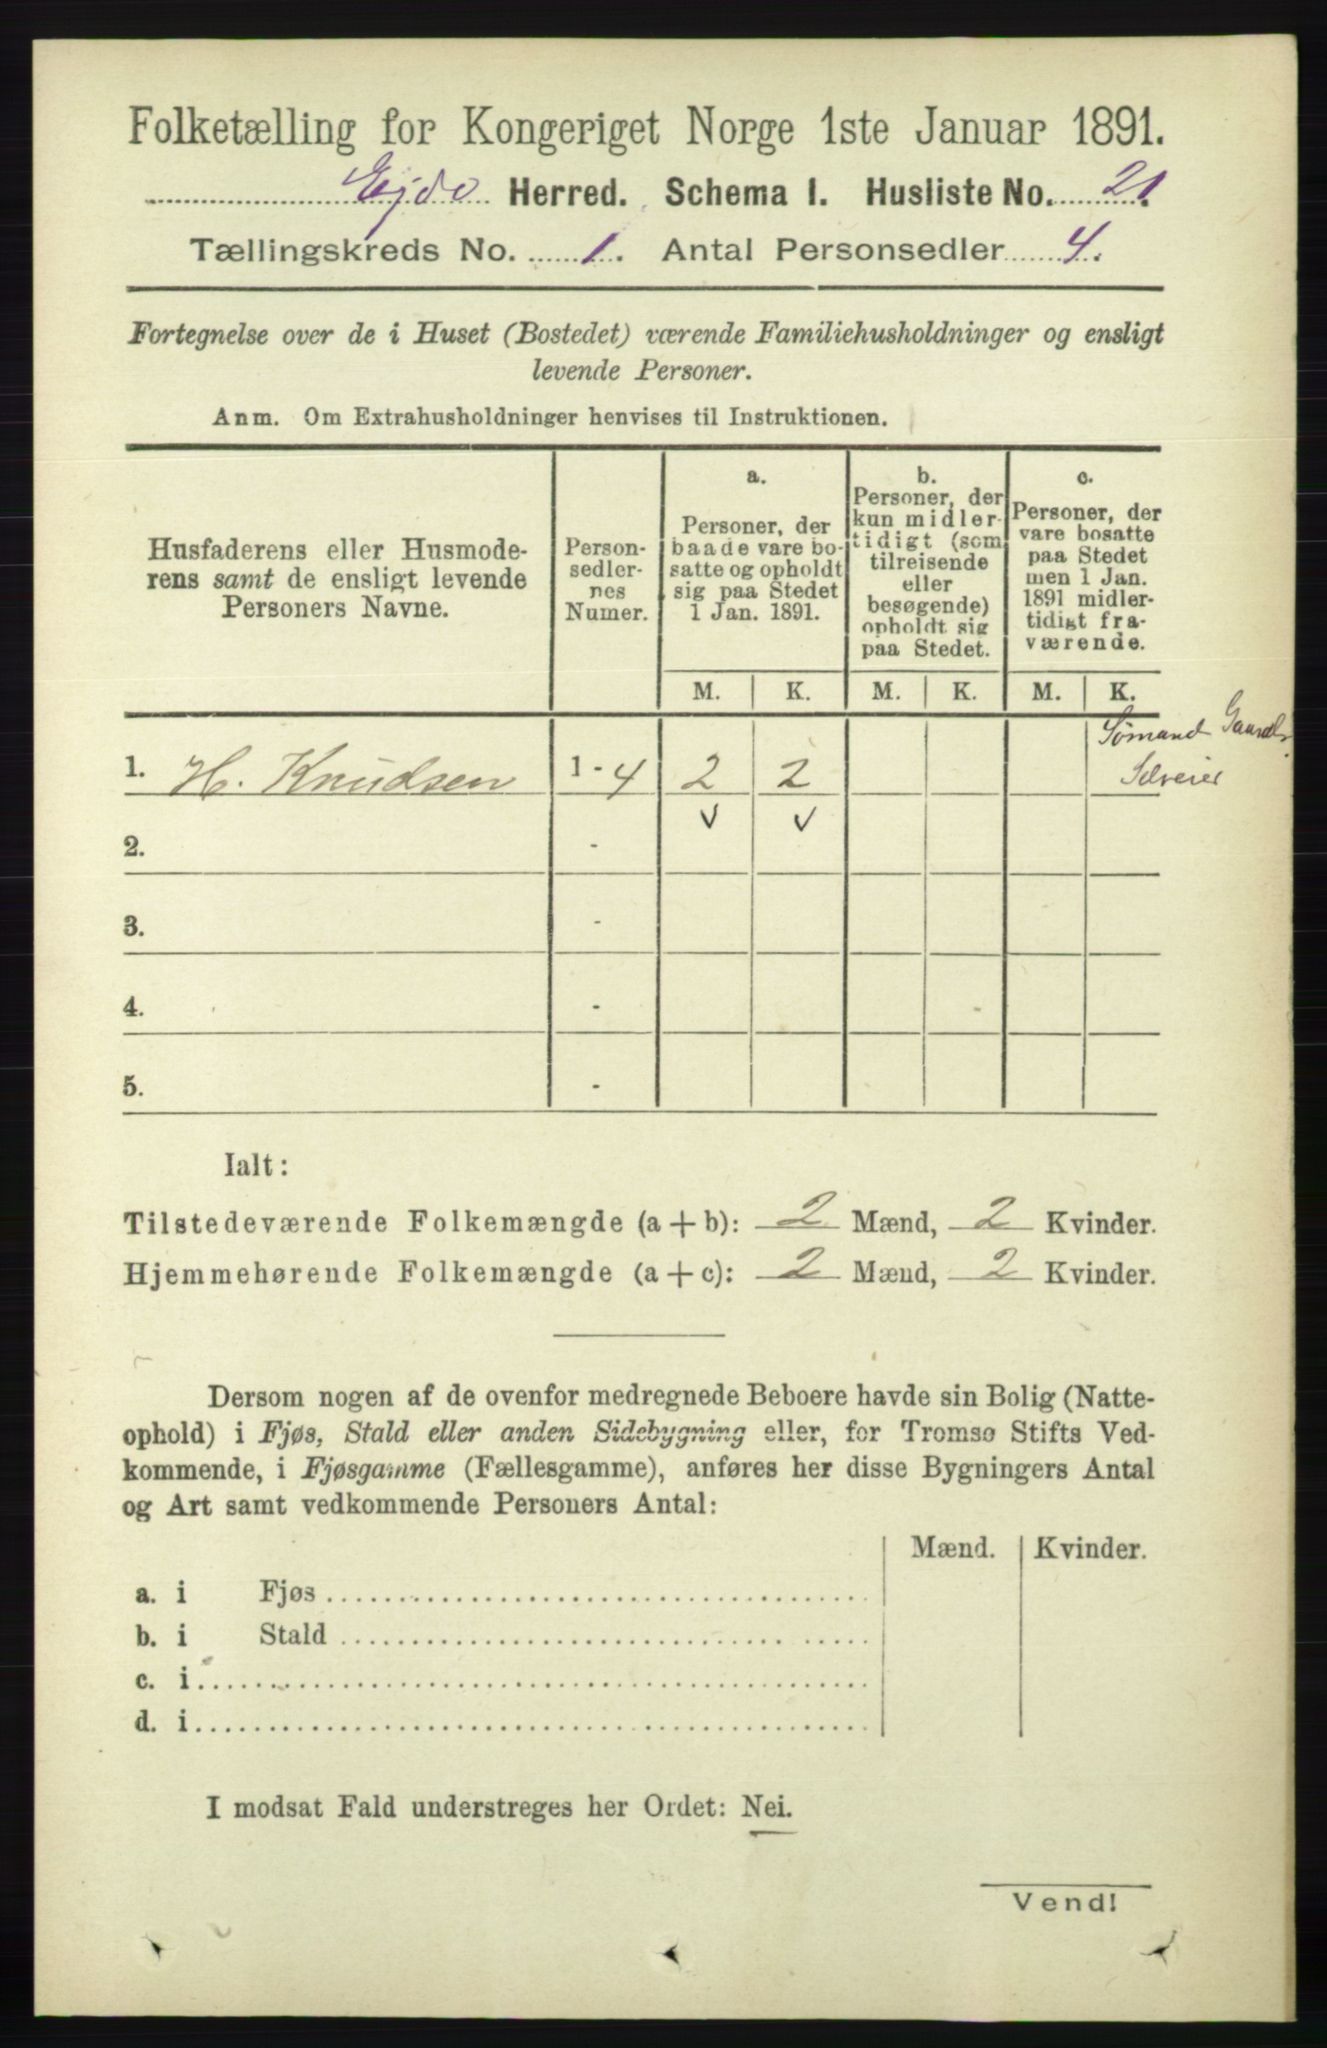 Folketælling for Kongeriget Norge 1ste Januar 1891.
Ejdo Herred. Schema I. Husliste No. 21.
Tællingskreds No. 1. Antal Personsedler 4.
Fortegnelse over de i Huset (Bostedet) værende Familiehusholdninger og ensligt
levende Personer.
Anm. Om Extrahusholdninger henvises til Instruktionen.
Husfaderens eller Husmode-
rens samt de ensligt levende
Personers Navne.
Person-
sedler-
nes
Numer.
a.
Personer, der
baade vare bo-
satte og opholdt
sig paa Stedet
1 Jan. 1891.
b.
Personer, der
kun midler-
tidigt (som
tilreisende
eller
besøgende)
opholdt sig
paa Stedet.
c.
Personer, der
vare bosatte
paa Stedet
men 1 Jan.
1891 midler-
tidigt fra-
værende.
M. K. M. K. M. K.
Sømand Gaardb.
1. H. Knudsen 1 - 4 2 2 Selveier
v v
2. -
3. -
4. -
5. -
Ialt:
Tilstedeværende Folkemængde (a + b): 2 Mænd, 2 Kvinder.
Hjemmehørende Folkemængde (a + c): 2 Mænd, 2 Kvinder.
Dersom nogen af de ovenfor medregnede Beboere havde sin Bolig (Natte-
ophold) i Fjøs, Stald eller anden Sidebygning eller, for Tromsø Stifts Ved-
kommende, i Fjøsgamme (Fællesgamme), anføres her disse Bygningers Antal
og Art samt vedkommende Personers Antal:
Mænd. Kvinder.
a. i Fjøs
b. i Stald
c. i
d. i
I modsat Fald understreges her Ordet: Nei.
Vend!